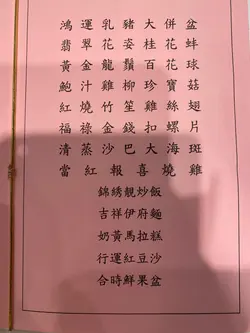 鴻運乳豬大併盆
翡翠花姿桂花蚌
黃金龍鬚百花球
鮑汁雞柳珍寶菇
紅燒竹笙雞絲翅
福祿金錢扣螺片
清蒸沙巴大海斑
當紅報喜燒雞
錦綉靚炒飯
吉祥伊府麵
奶黃馬拉糕
行運紅豆沙
合時鮮果盆